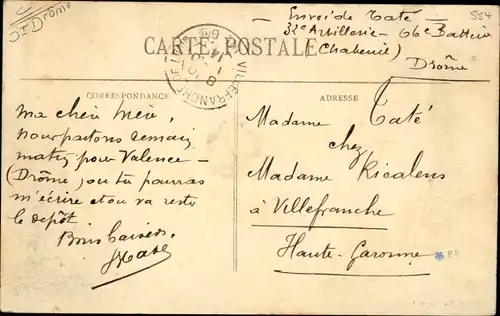 SI Drôme
554
Envoi de Taté
3e Artillerie - 66e Batterie
(Chabeuil)
Drôme
CARTE POSTALE
VILLEFRANCHE DE
CORRESPONDANCE
ADRESSE
Ma chère Mère,
Nous partons demain
matin pour Valence -
(Drôme) où tu pourras
m'écrire et où va rester
le dépôt
Bons baisers.
Madame Taté
chez
Madame Ricalens
à Villefranche
Haute-Garonne